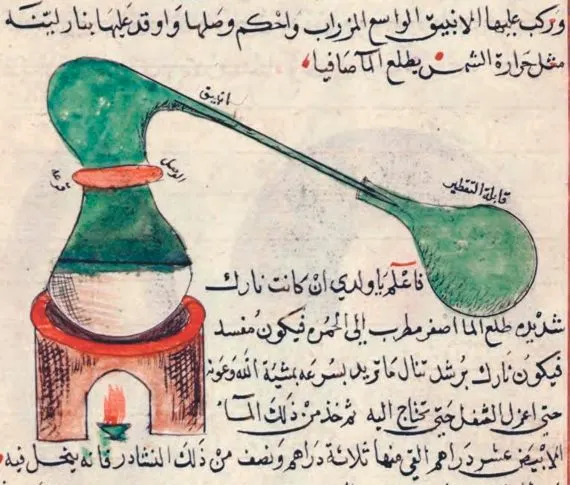 وركب عليها الانبيق الواسع المزراب واحكم وصلها واوقد عليها بنار لينة
مثل حرارة الشمس يطلع الما صافيا
انبيق
الوصل
قابلة التقطير
فاعلم يا ولدي ان كانت نارك
شديده طلع الما اصفر مطرب الى الحمره فيكون مفسد
فيكون نارك برشد تنال ما تريد بسرعه بمشية الله وعونه
حتى اعزل الثفل حتى تحتاج اليه ثم خذ من ذلك المآء
الابيض عشر دراهم القي منها ثلاثة دراهم ونصف من ذلك النشادر فانه ينحل فيه